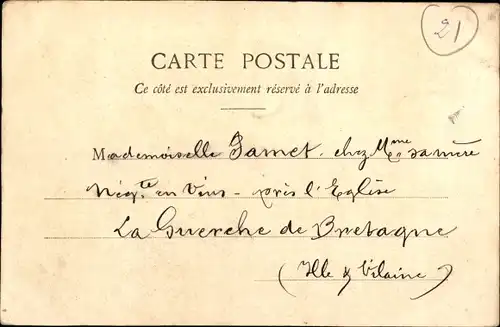 21
CARTE POSTALE
Ce côté est exclusivement réservé à l'adresse
Mademoiselle Jamet. chez Mme sa mère
Négte en Vins - près l'Eglise
La Guerche de Bretagne
(Ille & Vilaine)